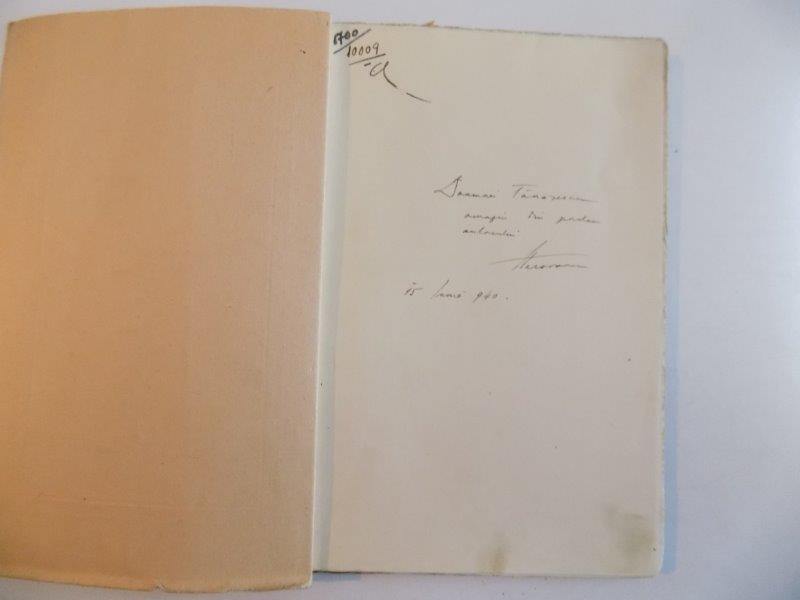 1700
10009
Doamnei Tănăsescu
omagiu din partea
autorului
15 Iunie 940.